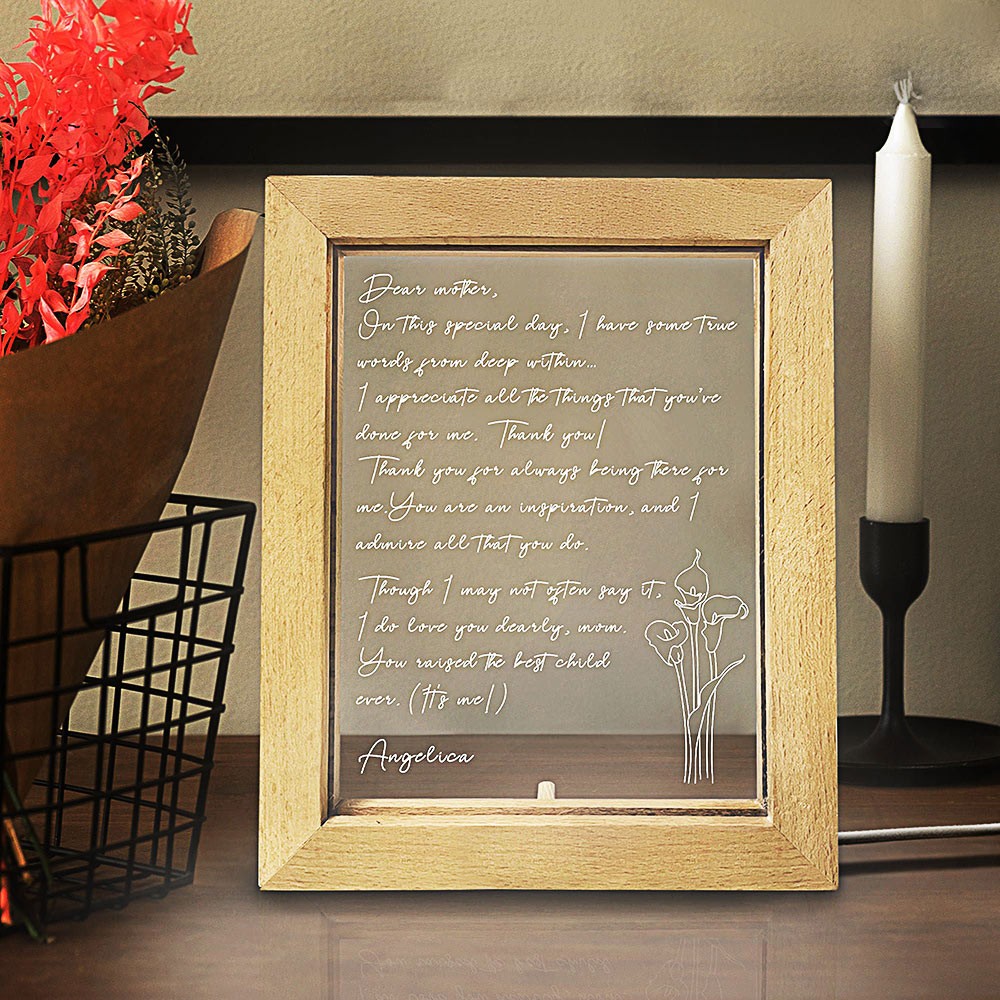 Dear mother,
On this special day, I have some true
words from deep within...
I appreciate all the things that you've
done for me. Thank you!
Thank you for always being there for
me.You are an inspiration, and I
admire all that you do.
Though I may not often say it,
I do love you dearly, mom.
You raised the best child
ever. (It's me!)
Angelica